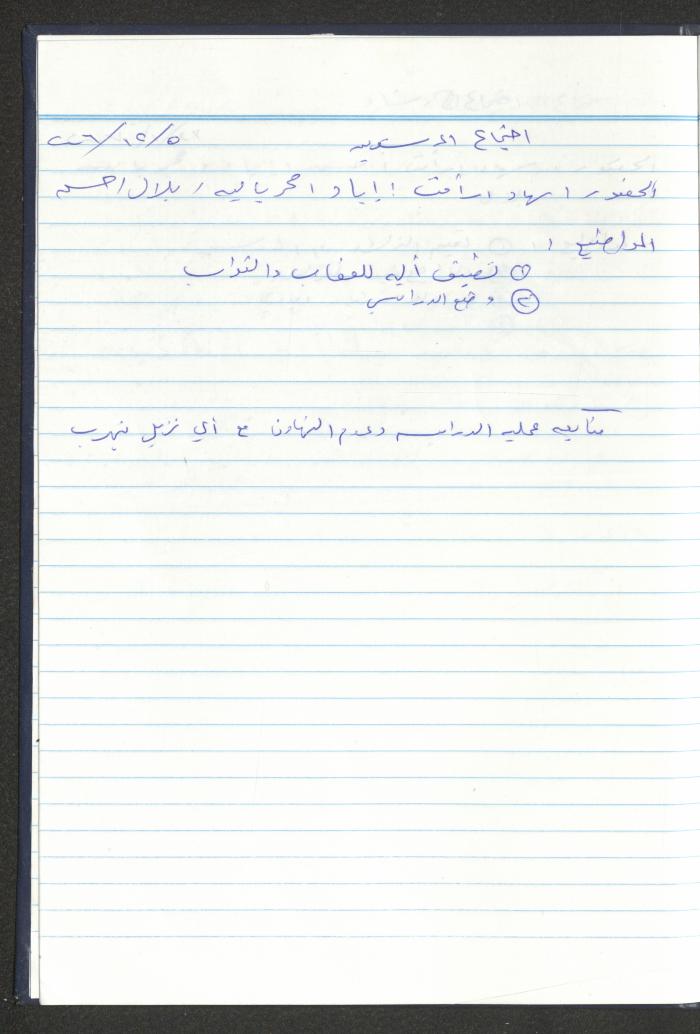 اجتماع المرشدين ٢٠٠٦/١٢/٥
الحضور / سهاد / رأفت / إياد / محمد / بلال /
المواضيع /
① تطبيق آلية للعقاب والثواب
② وضع الدراسي
متابعة عملية الدراسة وعدم التهاون مع أي نزيل يتهرب